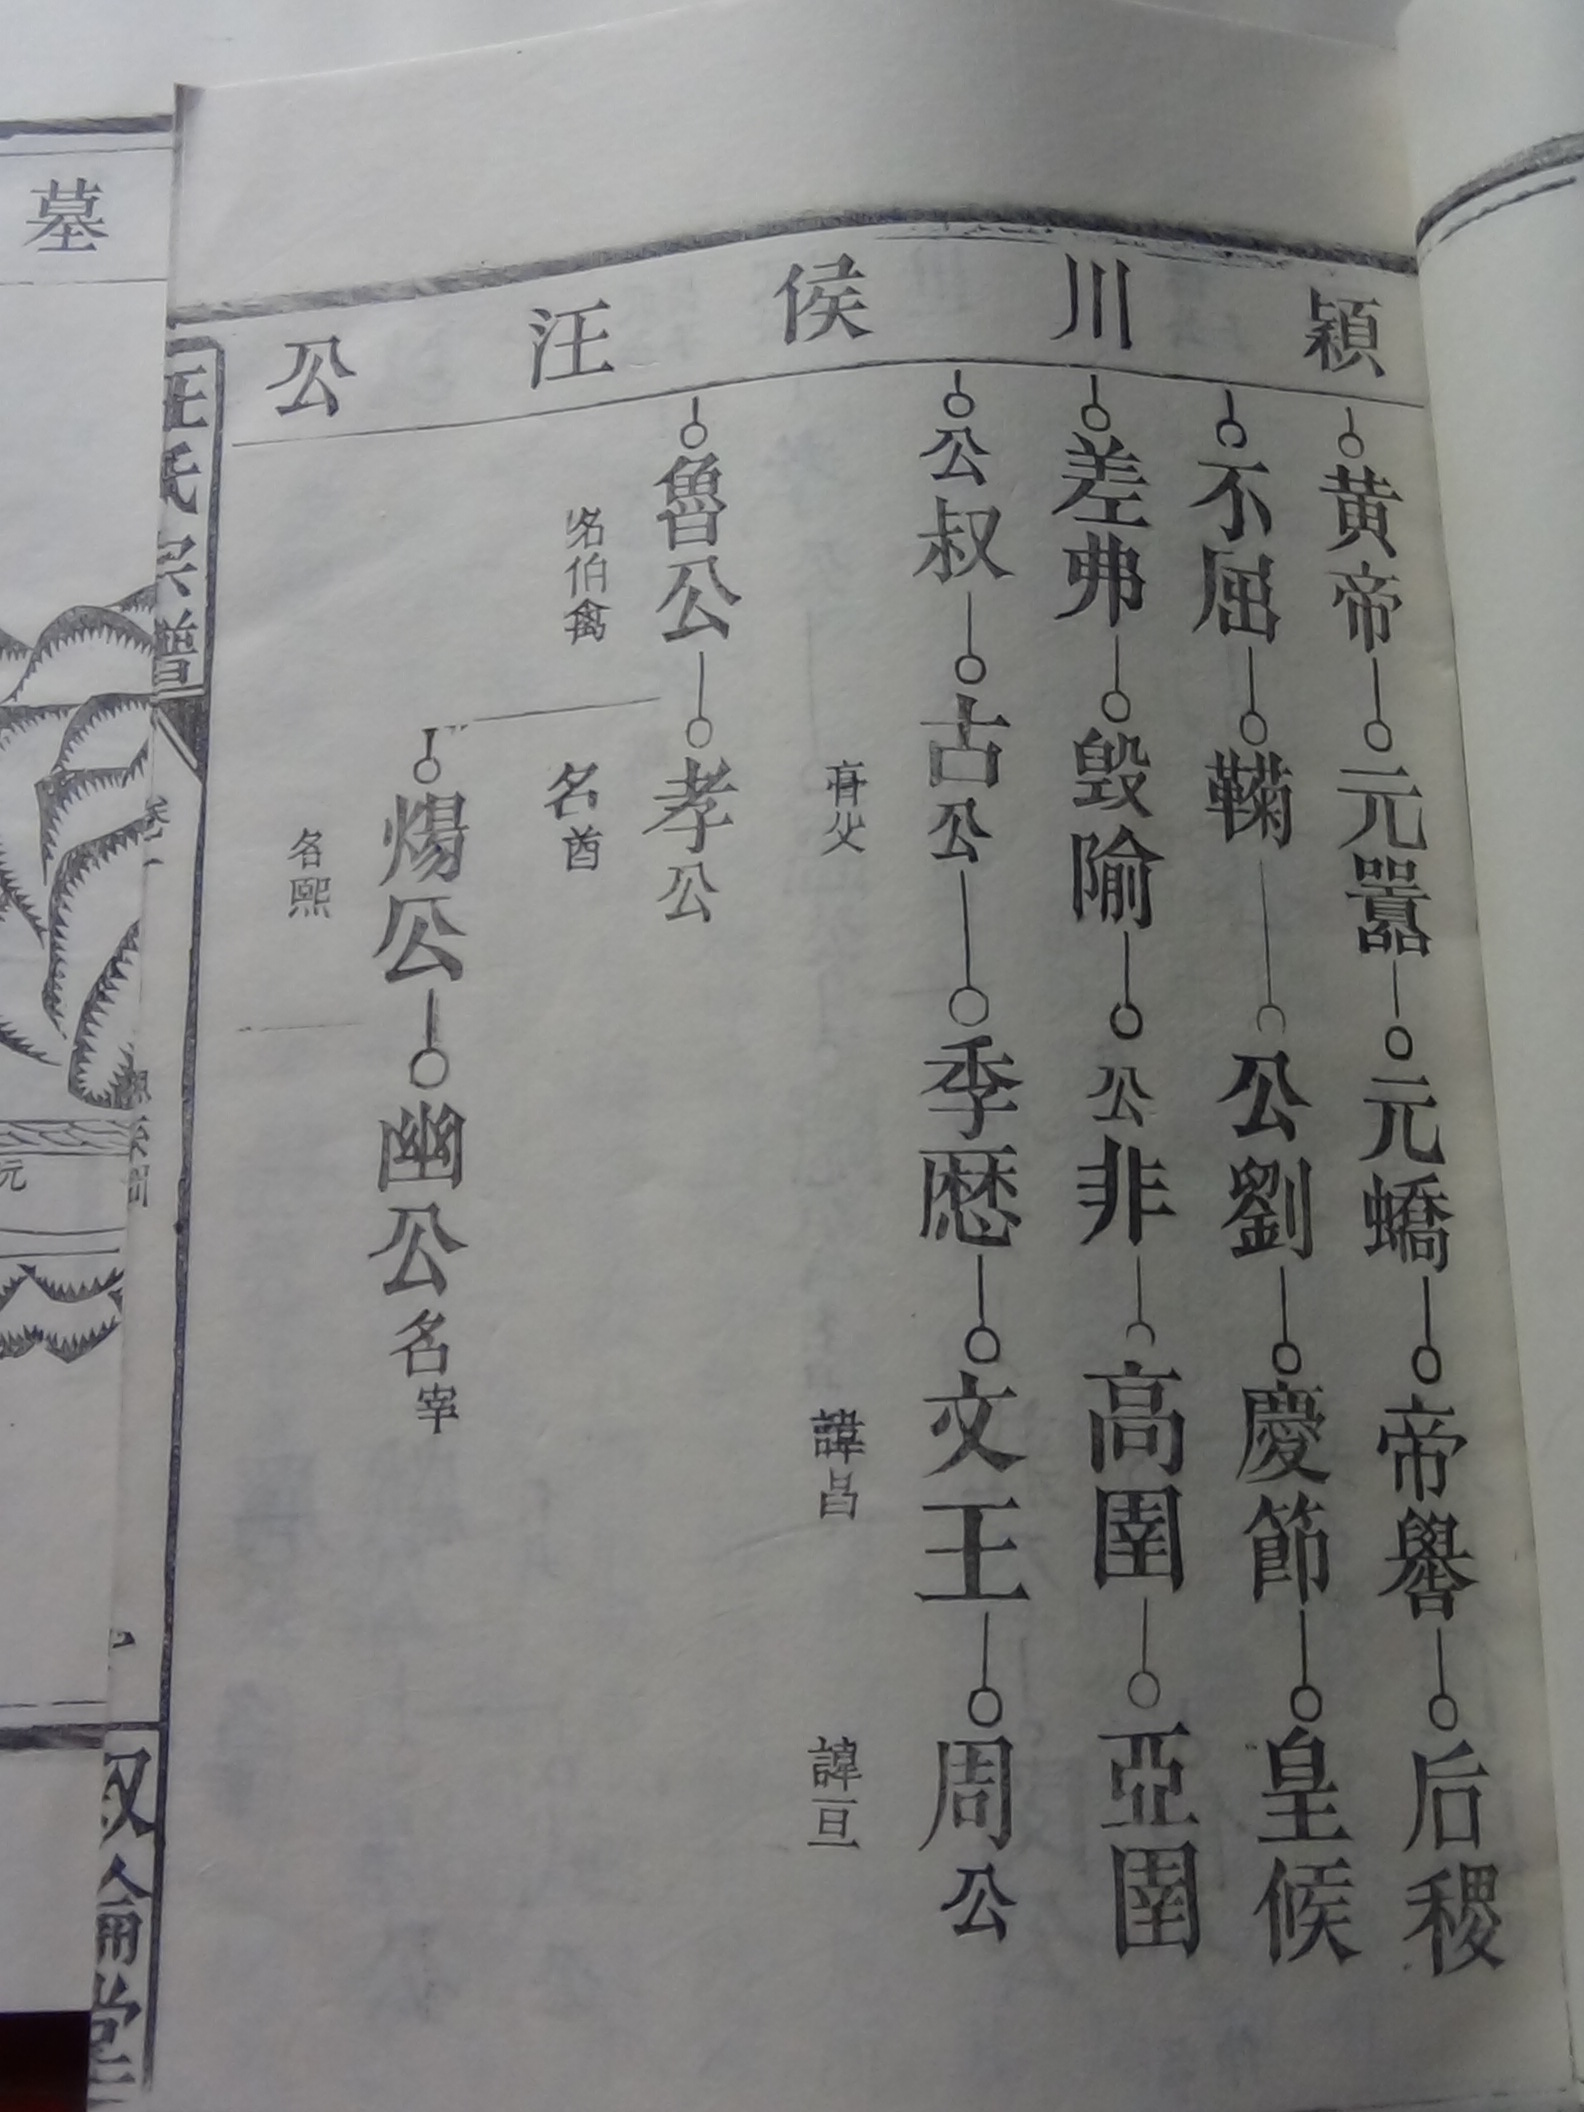 潁川侯汪公
黄帝 元囂 元蟜 帝嚳 后稷
不屈 鞠 公劉 慶節 皇候
差弗 毀隃 公非 高圉 亞圉
公叔 古公 季歷 文王 周公
亶父 諱昌 諱旦
魯公 孝公
名伯禽 名酋
煬公 幽公 名宰
名熙
汪氏宗譜
卷一
墓
元